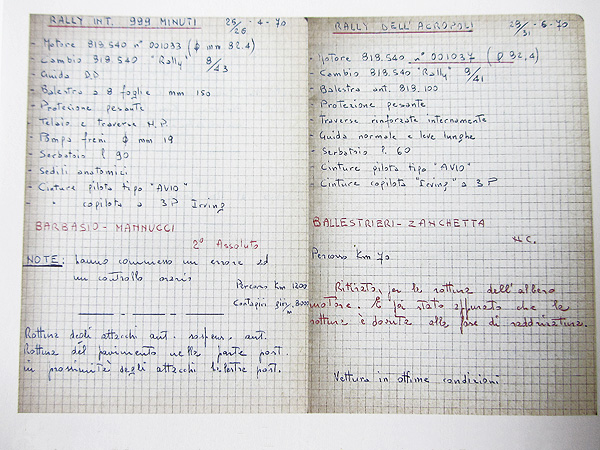 RALLY INT. 999 MINUTI 25/26 -4-70
- Motore 818.540 n° 001033 (ϕ mm 82.4)
- Cambio 818.540 "Rally" 9/43
- Guida D.D
- Balestra a 8 foglie mm 150
- Protezione pesante
- Telaio e traverse N.P.
- Pompa freni ϕ mm 19
- Serbatoio l. 90
- Sedili anatomici
- Cinture pilota tipo "AVIO"
- " copilota a 3P Irving
BARBASIO - MANNUCCI
2° Assoluto
NOTE: hanno commesso un errore ad
un controllo orario
Percorso Km 1200
Contagiri giri/m. 8000
Rottura degli attacchi ant. sospens. ant.
Rottura del pavimento nella parte post.
in prossimità degli attacchi balestre post.
RALLY DELL'ACROPOLI 29/31 -5-70
- Motore 818.540 n° 001037 (ϕ 82,4)
- Cambio 818.540 "Rally" 9/41
- Balestra ant. 818.100
- Protezione pesante
- Traverse rinforzate internamente
- Guida normale e leve lunghe
- Serbatoio l. 60
Cinture pilota tipo "AVIO"
Cinture copilota "Irving" a 3P
BALLESTRIERI - ZANCHETTA
N.C.
Percorso Km 70
Ritirato per la rottura dell'albero
motore. È poi stato appurato che la
rottura è dovuta alla fase di raddrizzatura.
Vettura in ottime condizioni